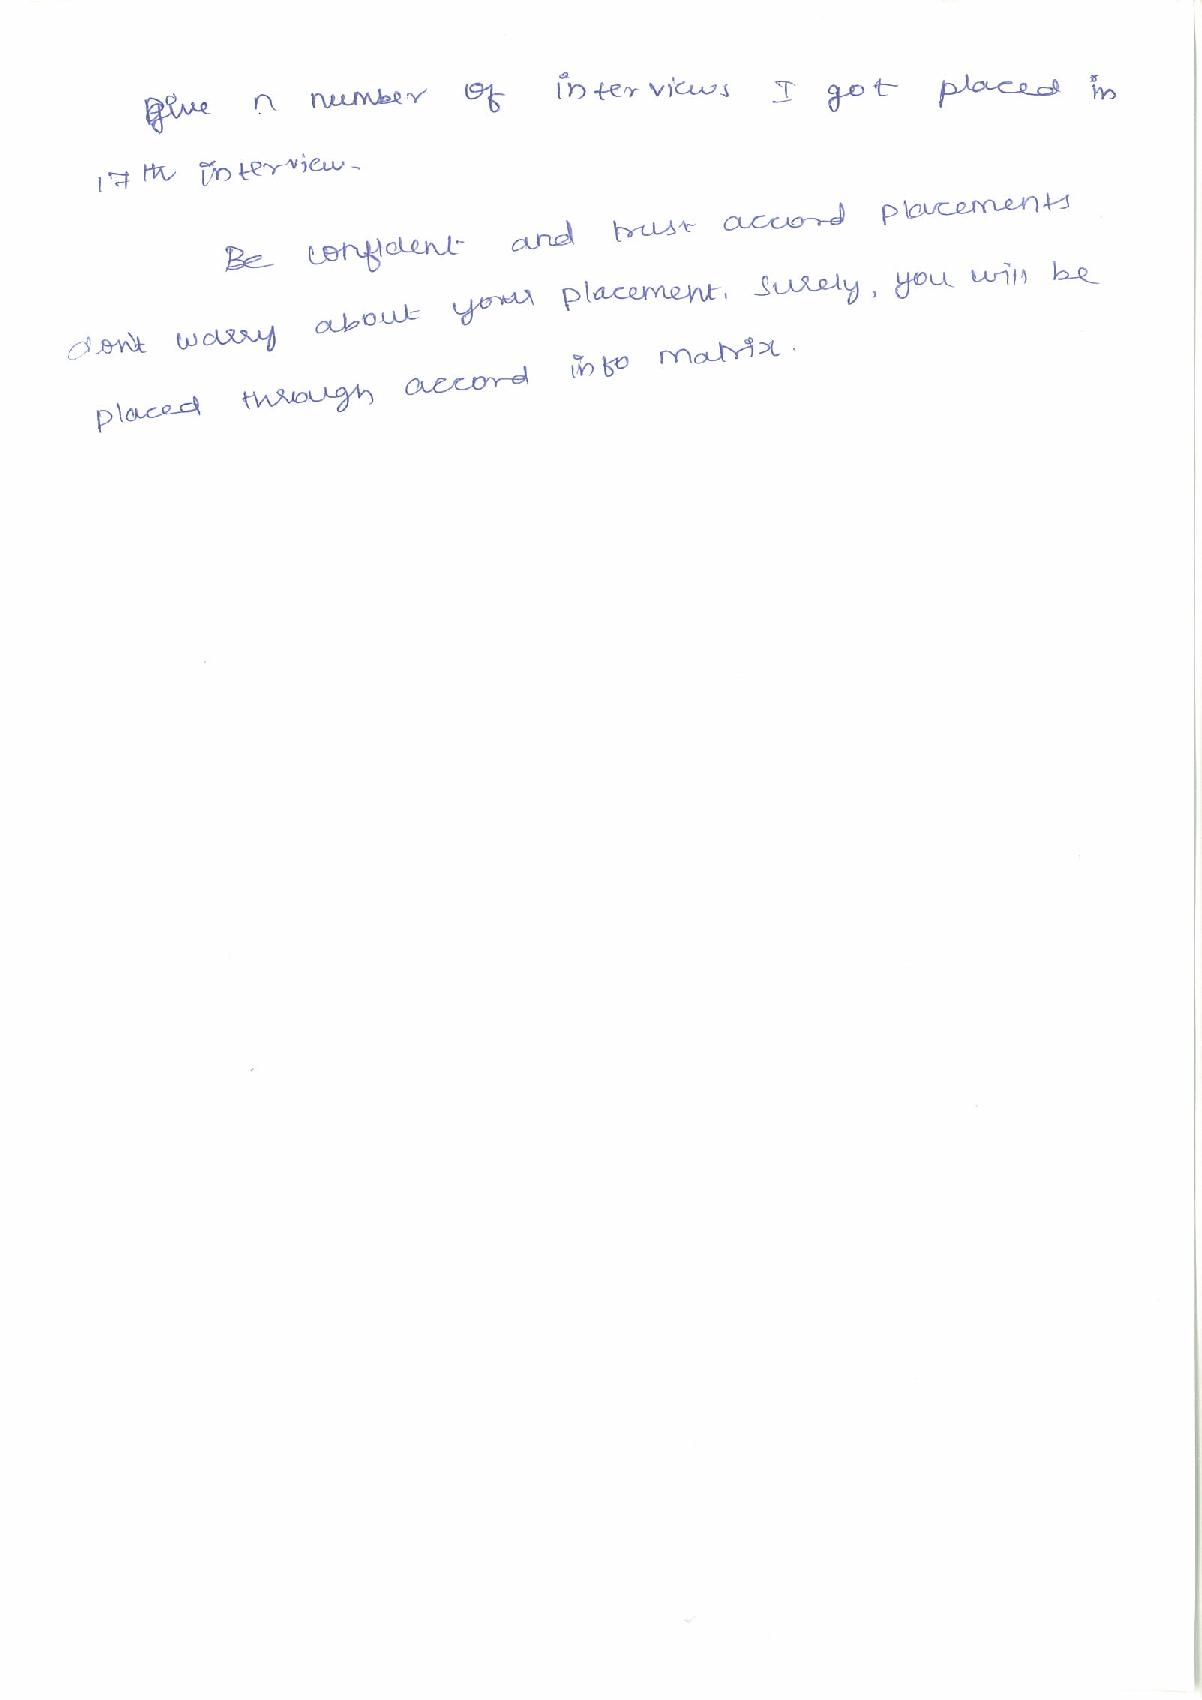 give n number of interviews I got placed in
17th interview.
Be confident and trust accord placements
don't worry about your placement. surely, you will be
placed through accord info matrix.